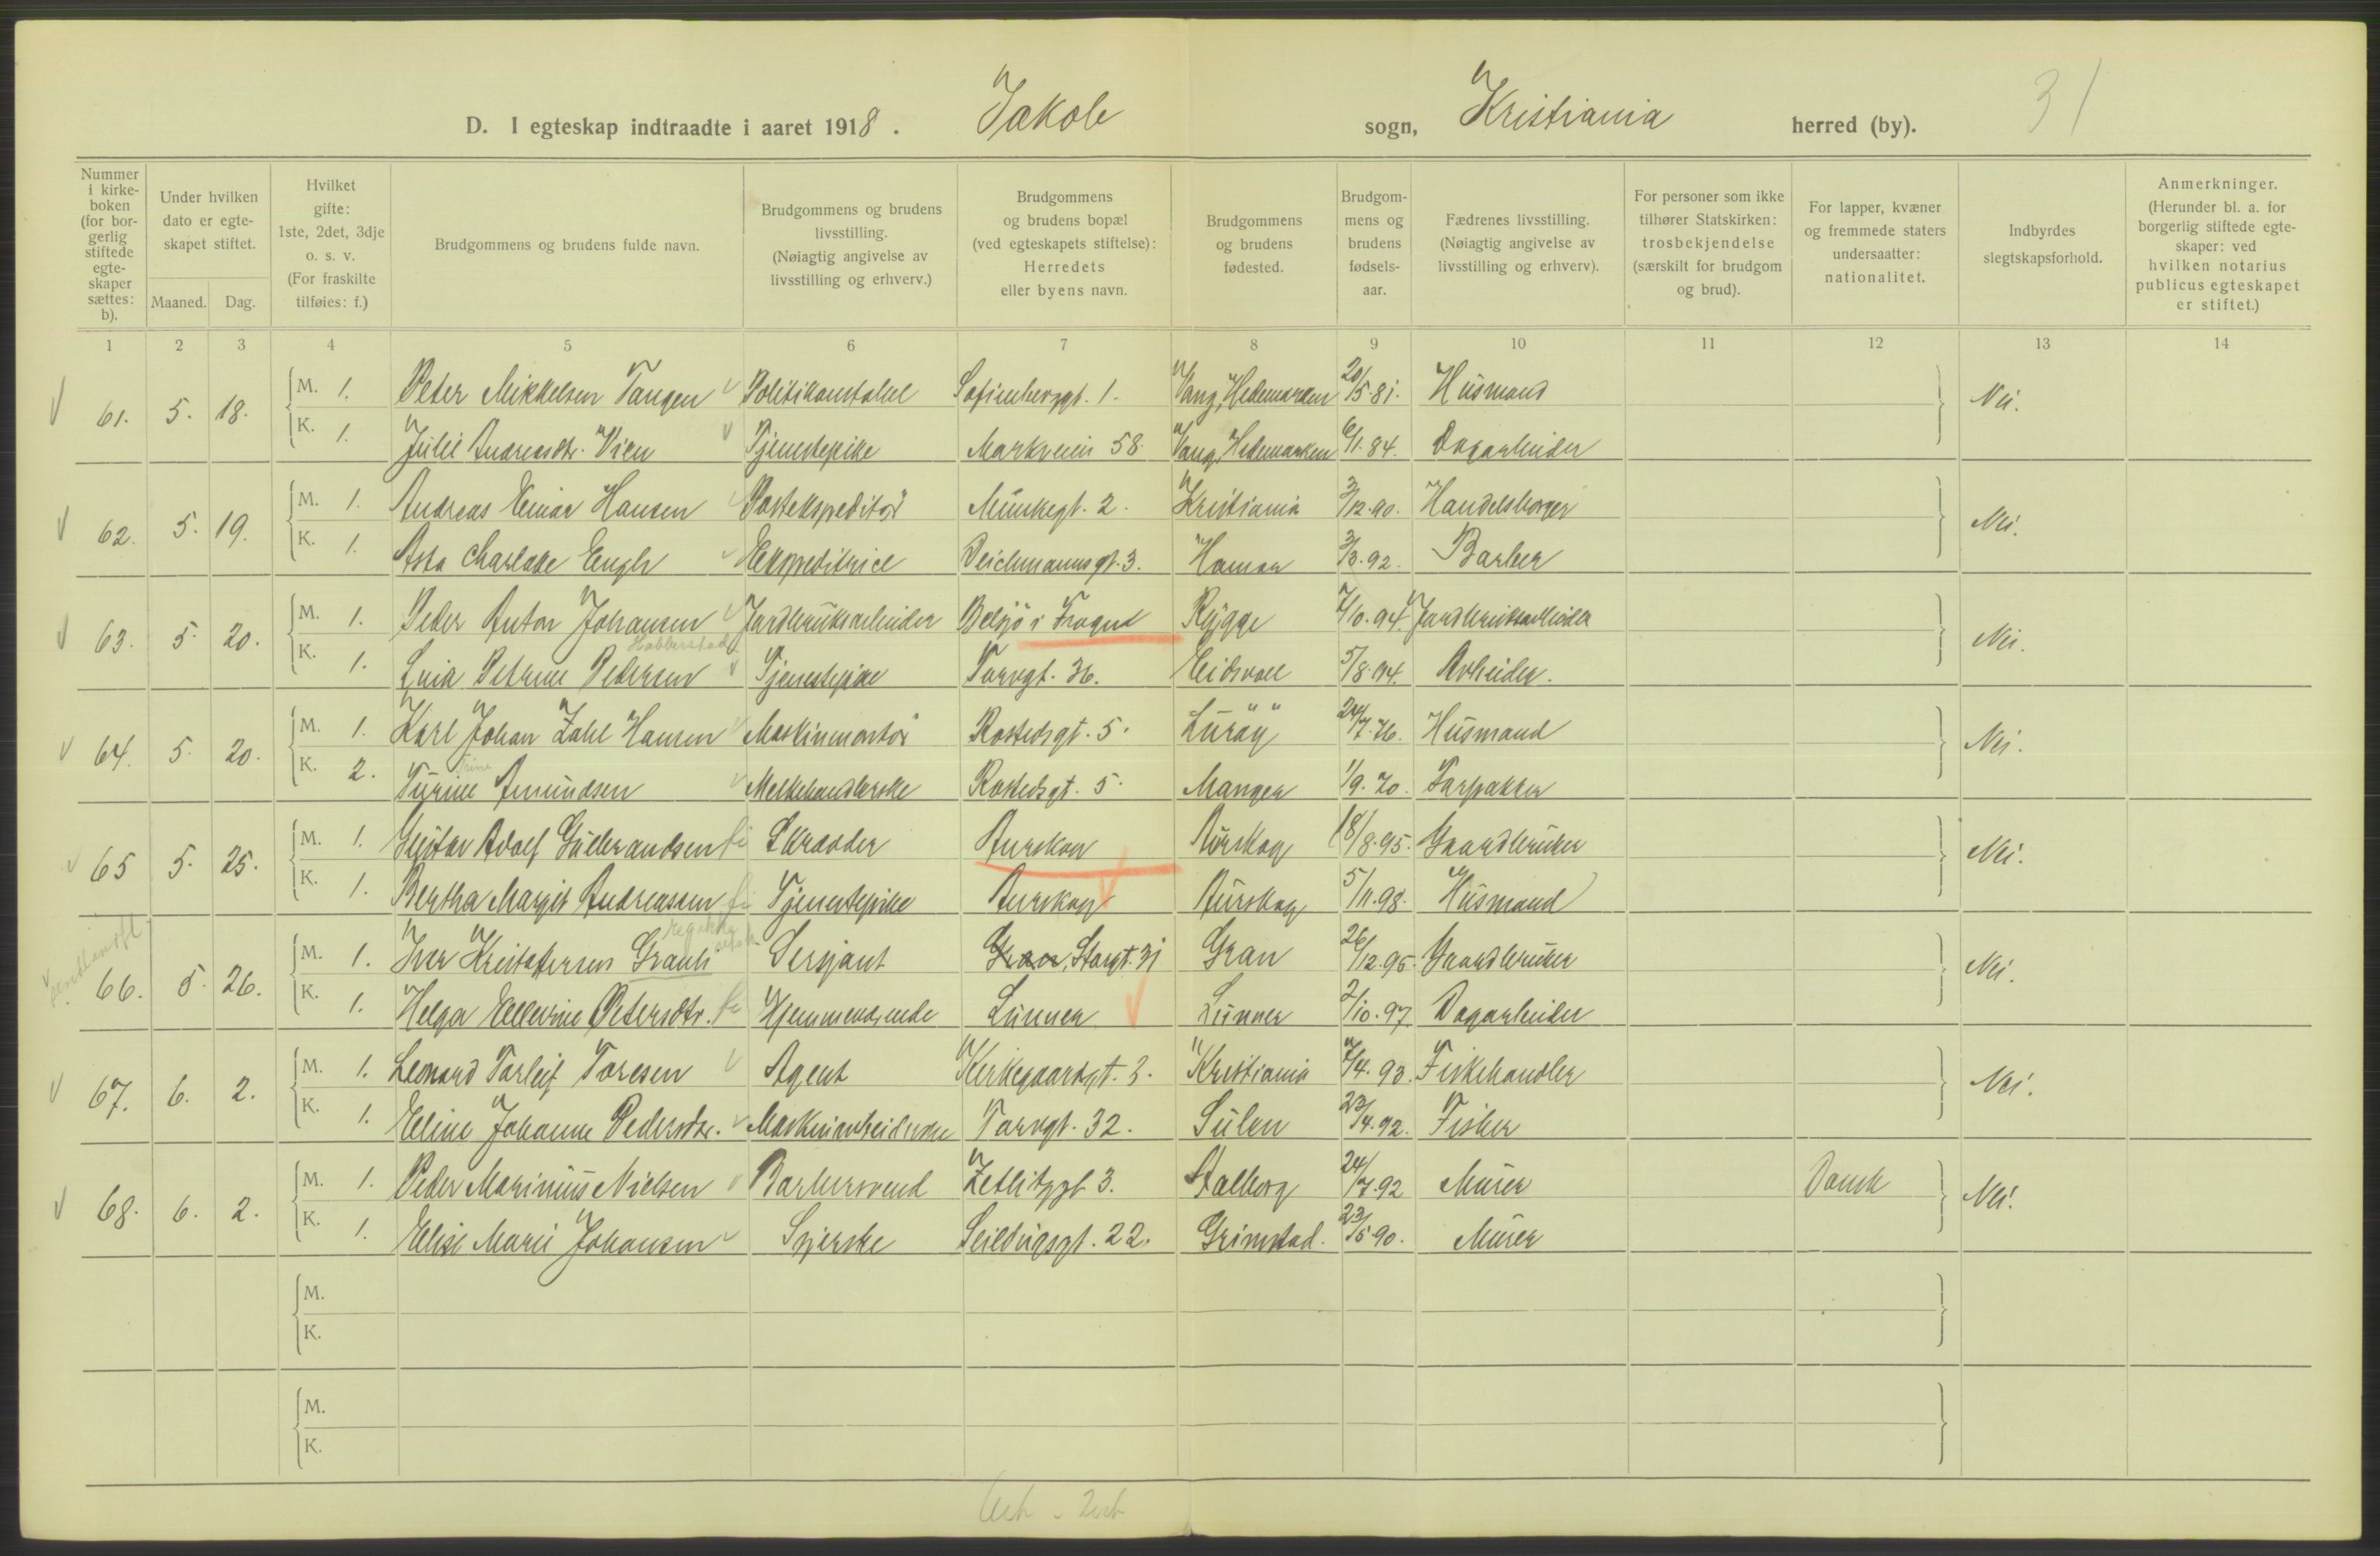 D. I egteskap indtraadte i aaret 1918. Jakob sogn, Kristiania herred (by). 31
Nummer i kirkeboken (for borgerlig stiftede egteskaper sættes: b).
Under hvilken dato er egteskapet stiftet.
Maaned. Dag.
Hvilket gifte: 1ste, 2det, 3dje o. s. v. (For fraskilte tilføies: f.)
Brudgommens og brudens fulde navn.
Brudgommens og brudens livsstilling. (Nøiagtig angivelse av livsstilling og erhverv.)
Brudgommens og brudens bopæl (ved egteskapets stiftelse): Herredets eller byens navn.
Brudgommens og brudens fødested.
Brudgommens og brudens fødselsaar.
Fædrenes livsstilling. (Nøiagtig angivelse av livsstilling og erhverv).
For personer som ikke tilhører Statskirken: trosbekjendelse (særskilt for brudgom og brud).
For lapper, kvæner og fremmede staters undersaatter: nationalitet.
Indbyrdes slegtskapsforhold.
Anmerkninger. (Herunder bl. a. for borgerlig stiftede egteskaper: ved hvilken notarius publicus egteskapet er stiftet.)
1 2 3 4 5 6 7 8 9 10 11 12 13 14
61. 5. 18. M. 1. Peter Mikkelsen Tangen Politikonstabel Sofienberggt. 1. Vang, Hedemarken 20/5.81. Husmand Nei.
K. 1. Julie Andreasdtr. Vien Tjenestepike Markveien 58 Vang, Hedemarken 6/1.84. Dagarbeider
62. 5. 19. M. 1. Andreas Einar Hansen Postekspeditør Munkegt. 2. Kristiania 3/12.90. Handelsborger Nei.
K. 1. Asta Charlotte Engh Ekspeditrice Deichmannsgt. 3. Hamar 3/3.92. Barber
63. 5. 20. M. 1. Peder Anton Johansen Jordbruksarbeider Belsjø i Frogn Rygge 7/10.94. Jordbruksarbeider Nei.
Habberstad
K. 1. Petrine Pedersen Tjenestepike Torvgt. 36. Eidsvoll 5/8.94. Arbeider.
64. 5. 20. M. 1. Karl Johan Zahl Hansen Maskinmontør Rostedsgt. 5. Lurøy 24/7.76. Husmand Nei.
K. 2. Turine Amundsen Melkehandlerske Rostedsgt. 5. Manger 1/9.70. Forpakter
65 5. 25. M. 1. Gustav Adolf Gulbrandsen Skrædder Aurskog Aurskog 18/8.95. Gaardbruker Nei.
K. 1. Bertha Margit Andreassen Tjenestepike Aurskog Aurskog 5/11.98. Husmand
66. 5. 26. M. 1. Iver Kristoffersen Granli Sersjant Gran, Storgt. 31 Gran 26/12.95. Gaardbruker Nei.
K. 1. Helga Ellevine Petersdtr. Hjemmeværende Lunner Lunner 2/10.97 Dagarbeider
67. 6. 2. M. 1. Leonard Torleif Toresen Agent Kirkegaardsgt. 3. Kristiania 7/4.93. Fiskehandler Nei.
K. 1. Eline Johanne Pedersdtr. Maskinarbeiderske Torvgt. 32. Sulen 23/4.92. Fisker
68. 6. 2. M. 1. Peder Marinius Nielsen Barbersvend Zetlitzgt 3. Aalborg 24/7.92 Murer Dansk Nei.
K. 1. Elise Marie Johansen Syerske Seilduksgt. 22. Grimstad. 23/5.90. Murer
M.
K.
M.
K.